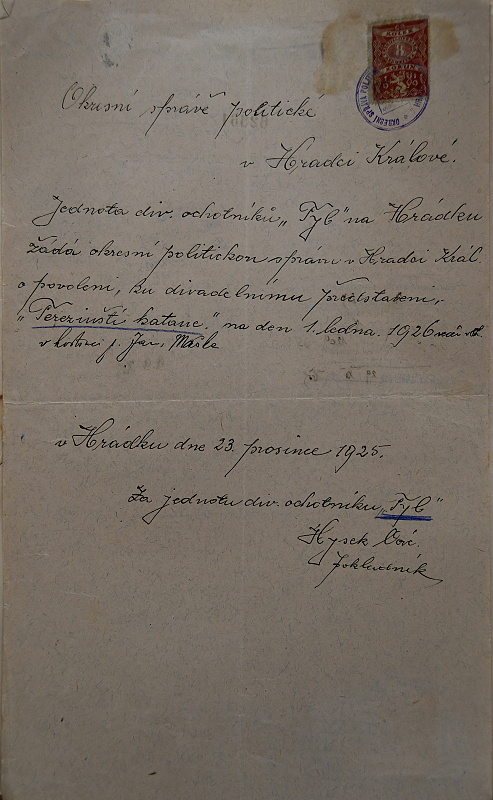 KOLEK
8
KORUN
OKRESNÍ SPRÁVA POLIT
Okresní správě politické
v Hradci Králové.
Jednota div. ochotníků „Tyl" na Hrádku
žádá okresní politickou správu v Hradci Král.
o povolení, ku divadelnímu představení,
„Terezinští katane." na den 1. ledna. 1926
v hostinci p. Jar. Mašla
v Hrádku dne 23. prosince 1925.
Za jednotu div. ochotníku „Tyl"
Hysek
pokladník